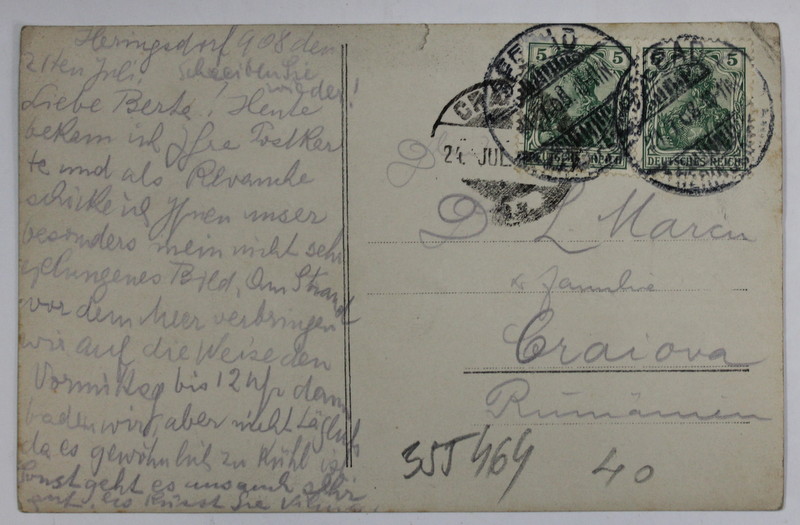 Heringsdorf 908 den
21ten Juli. Schreiben Sie
wieder!
Liebe Berta! Heute
bekam ich Ihre Postkar
te und als Revanche
schicke ich Ihnen unser
besonders mein nicht sehr
gelungenes Bild, Am Strand
vor dem Meer verbringen
wir auf die Weise den
Vormittag bis 12 Uhr dann
baden wir, aber nicht täglich
da es gewöhnlich zu kühl ist
Sonst geht es uns auch sehr
gut. es küsst Sie
5 5
5
DEUTSCHES REICH
DEUTSCHES REICH
SEEBAD
24 JUL
D
D L Marcu
& Familie
Craiova
Rumänien
355464
40